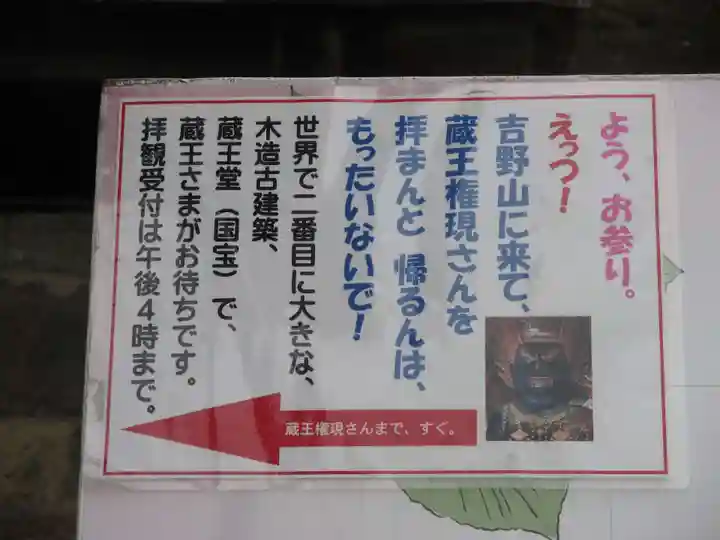 よう、お参り。
えっつ！
吉野山に来て、
蔵王権現さんを
拝まんと 帰るんは、
もったいないで！
世界で二番目に大きな、
木造古建築、
蔵王堂（国宝）で、
蔵王さまがお待ちです。
拝観受付は午後４時まで。
蔵王権現さんまで、すぐ。